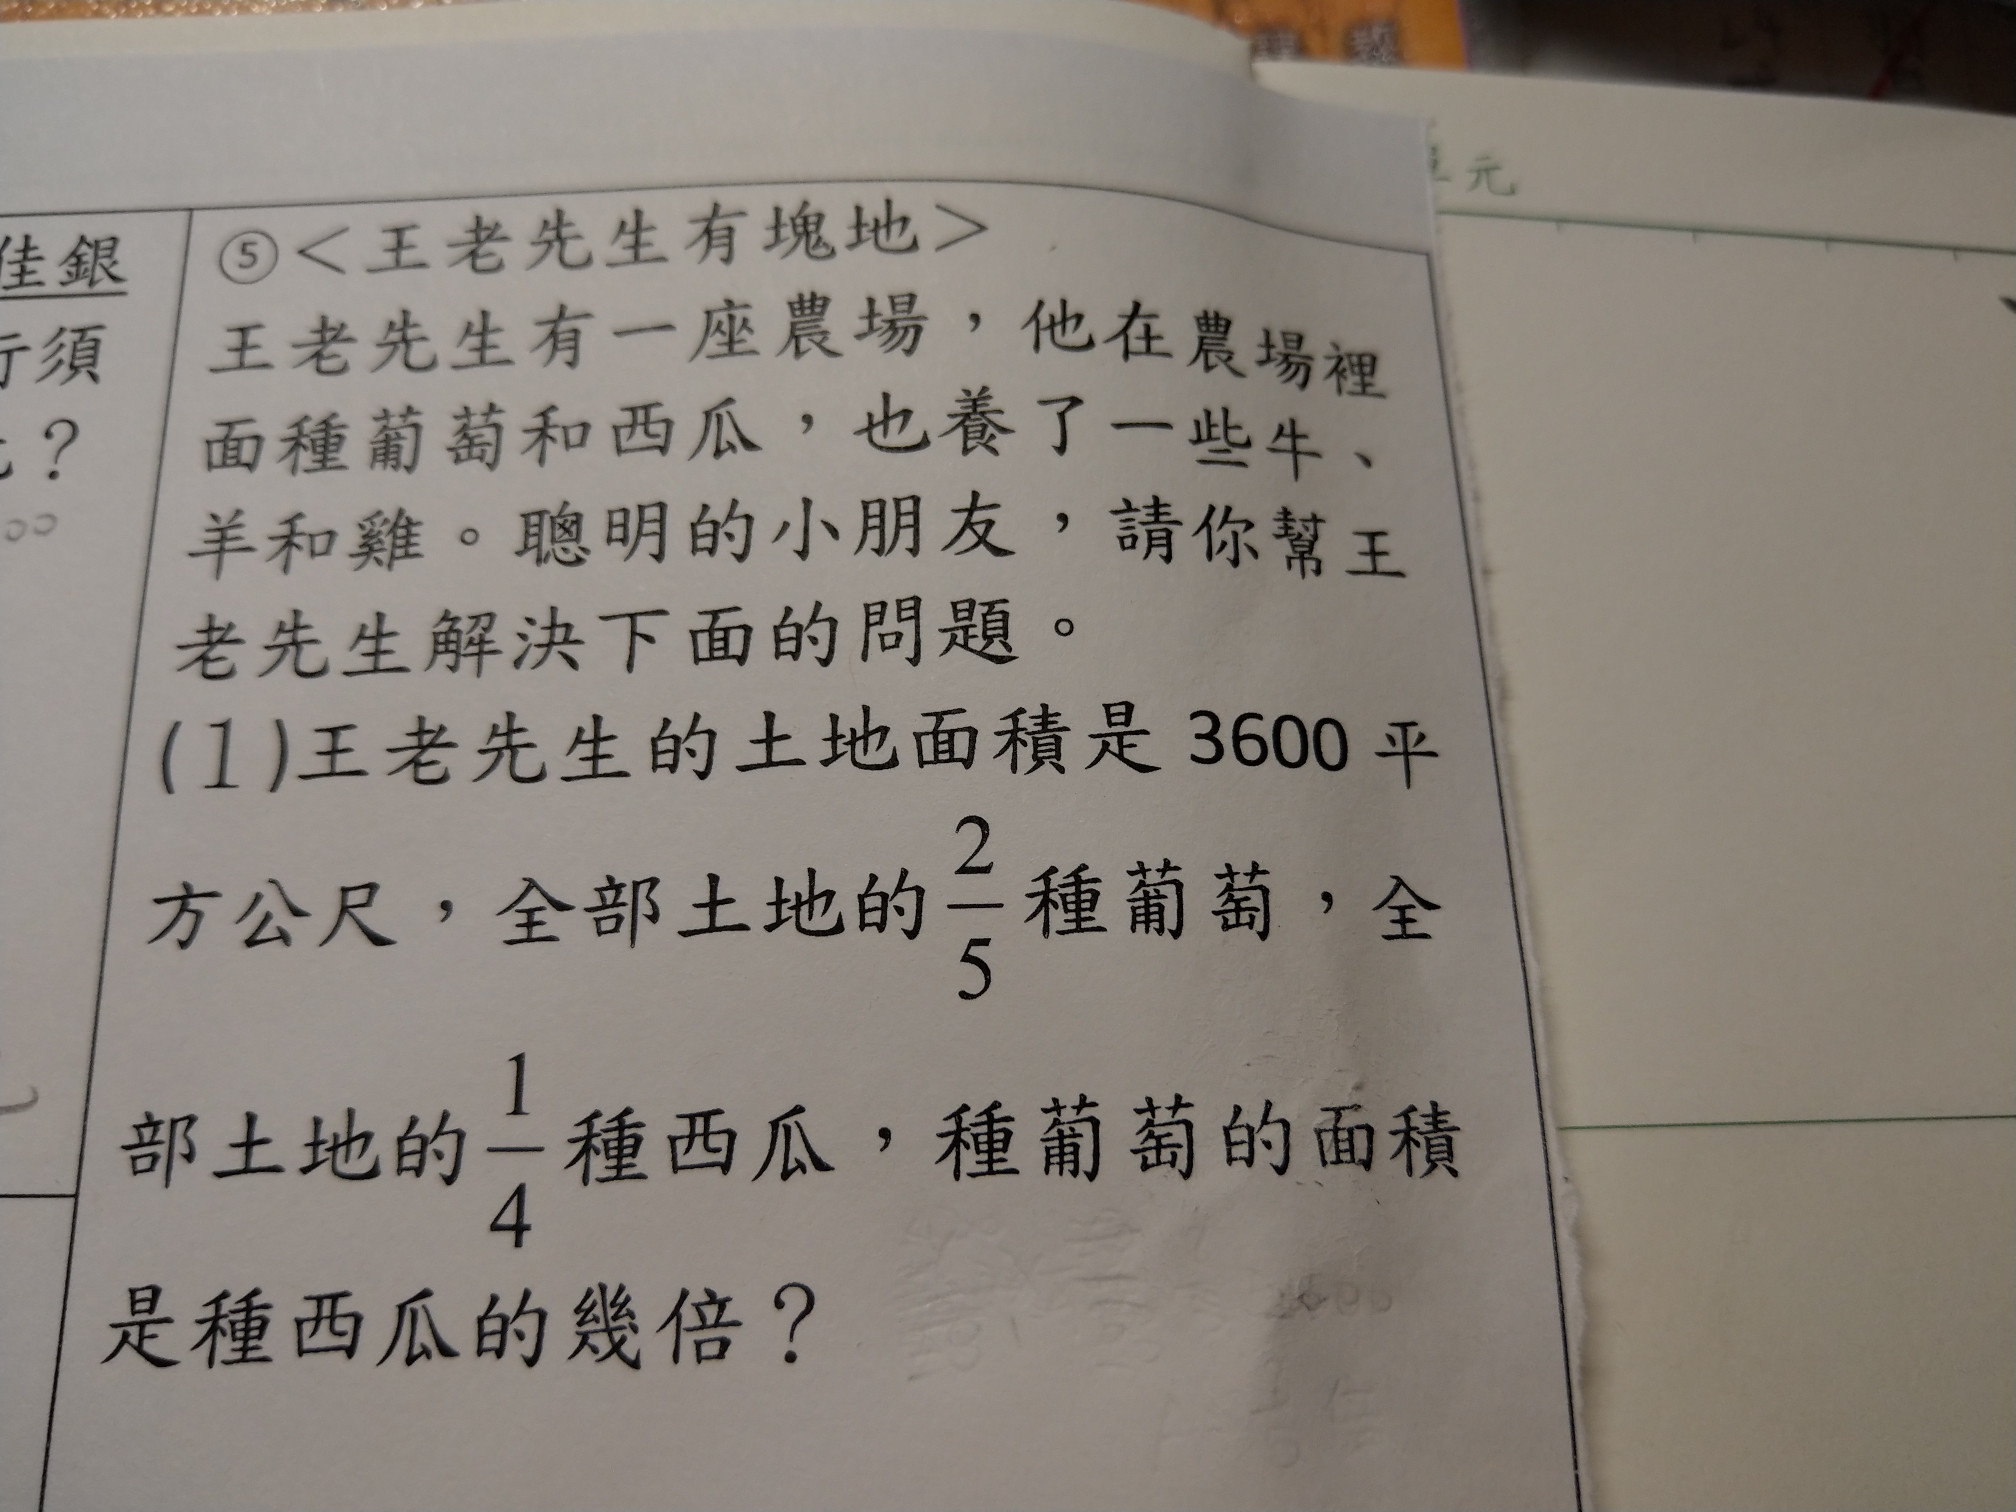 元
佳銀
行須
?
⑤<王老先生有塊地>
王老先生有一座農場，他在農場裡
面種葡萄和西瓜，也養了一些牛、
羊和雞。聰明的小朋友，請你幫王
老先生解決下面的問題。
(1)王老先生的土地面積是 3600 平
方公尺，全部土地的 2/5 種葡萄，全
部土地的 1/4 種西瓜，種葡萄的面積
是種西瓜的幾倍？